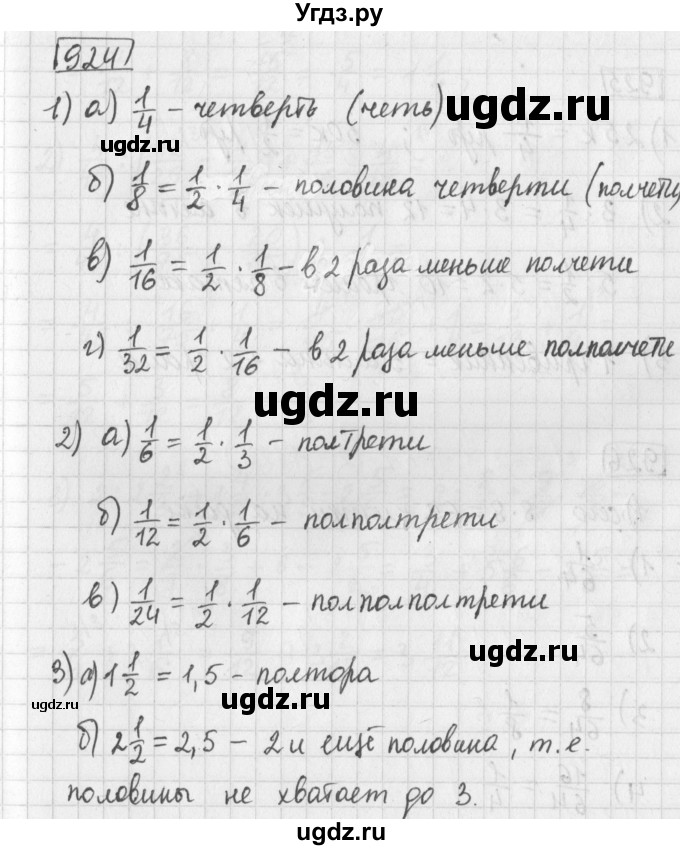 Угдз.ру
924
1) а) 1/4 – четверть (четь)
ugdz.ru
ugdz.ru
б) 1/8 = 1/2 · 1/4 – половина четверти (полчети
в) 1/16 = 1/2 · 1/8 – в 2 раза меньше полчети
г) 1/32 = 1/2 · 1/16 – в 2 раза меньше полполчети
ugdz.ru
ugdz.ru
2) а) 1/6 = 1/2 · 1/3 – полтрети
б) 1/12 = 1/2 · 1/6 – полполтрети
в) 1/24 = 1/2 · 1/12 – полполполтрети
3) а) 1 1/2 = 1,5 – полтора
ugdz.ru
ugdz.ru
б) 2 1/2 = 2,5 – 2 и ещё половина, т.е.
половины не хватает до 3.
ugdz.ru